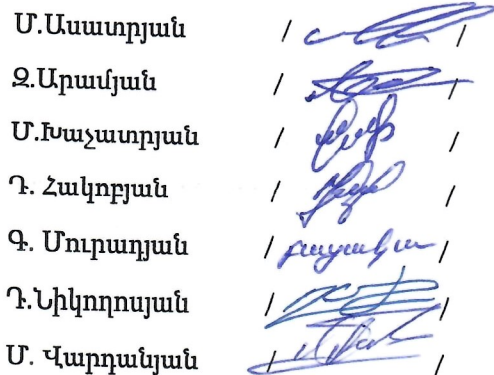 Մ.Ասատրյան / /
Զ.Արամյան / /
Մ.Խաչատրյան / /
Դ. Հակոբյան / /
Գ. Մուրադյան / բացակա /
Դ.Նիկողոսյան / /
Մ. Վարդանյան / /